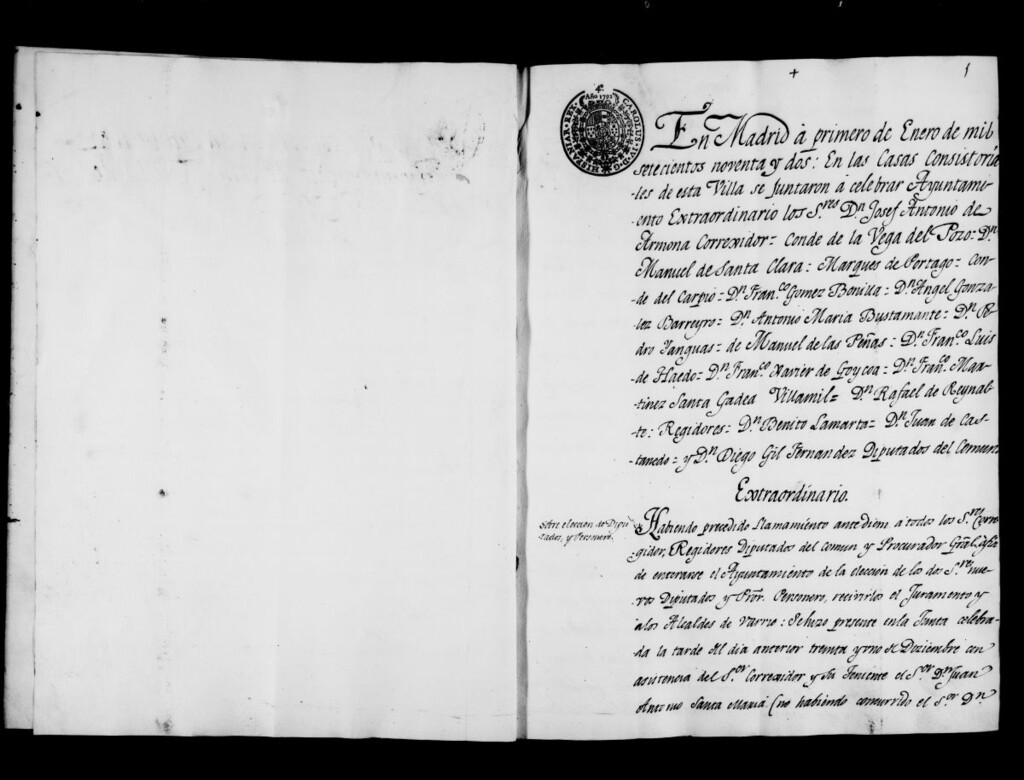 1
4º
Año 1792
CAROLUS IV D G HISPANIAR REX
En Madrid à primero de Enero de mil
setecientos noventa y dos: En las Casas Consistoria
-les de esta Villa se juntaron à celebrar Ayuntami-
ento Extraordinario los S.res D.n Josef Antonio de
Armona Correxidor= Conde de la Vega del Pozo= D.n
Manuel de Santa Clara= Marques de Portago= Con-
-de del Carpio= D.n Fran.co Gomez Bonilla= D.n Angel Gonza-
lez Barreyro= D.n Antonio Maria Bustamante= D.n Pe-
dro Yanguas= de Manuel de las Peñas= D.n Fran.co Luis
-de Haedo= D.n Fran.co Xavier de Goycoa= D.n Fran.co Mar-
tinez Santa Gadea Villamil= D.n Rafael de Reynal-
-te: Regidores= D.n Benito Lamarta= D.n Juan de Cas-
-tanedo= y D.n Diego Gil Fernandez Diputados del Comun=
Extraordinario.
Sobre eleccion de Dipu
tados, y Personero.
Habiendo precedido llamamiento antediem a todos los S.res Corre-
gidor, Regidores Diputados del Comun y Procurador Gral, a fin
de enterarse el Ayuntamiento de la eleccion de los dos S.res nue-
vos Diputados y Pror. Personero, recivirlos el Juramento y
a los Alcaldes de Varrio: Se hizo presente en la Junta celebra-
-da la tarde del dia anterior treinta y uno de Diziembre con
asistencia del S.or Correxidor y su Teniente el S.or D.n Juan
Antonio Santa Maria (no habiendo concurrido el S.or D.n